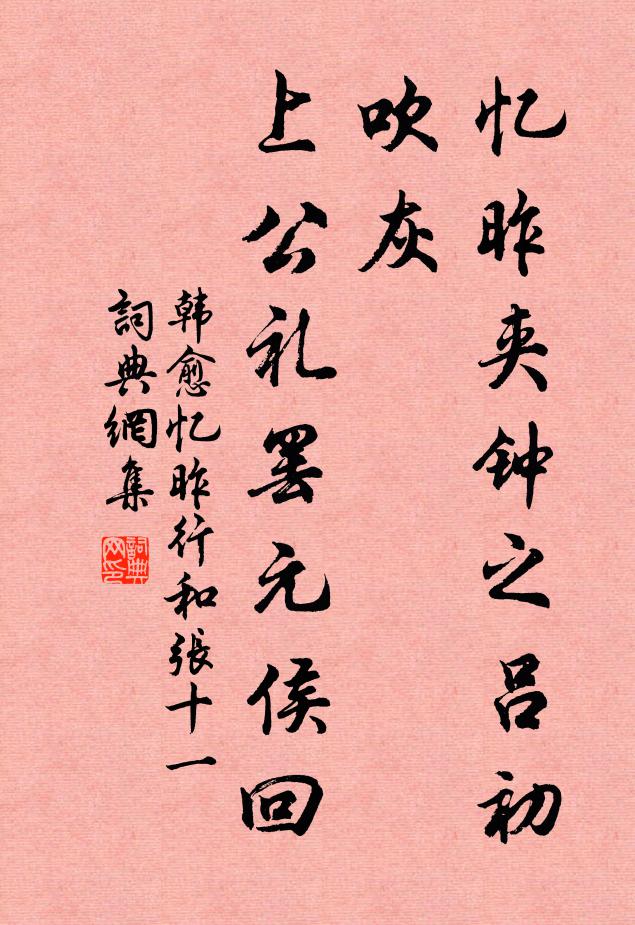 忆昨夹钟之吕初
吹灰
上公礼罢元侯回
韩愈忆昨行和張十一
詞典網集
詞典
网印